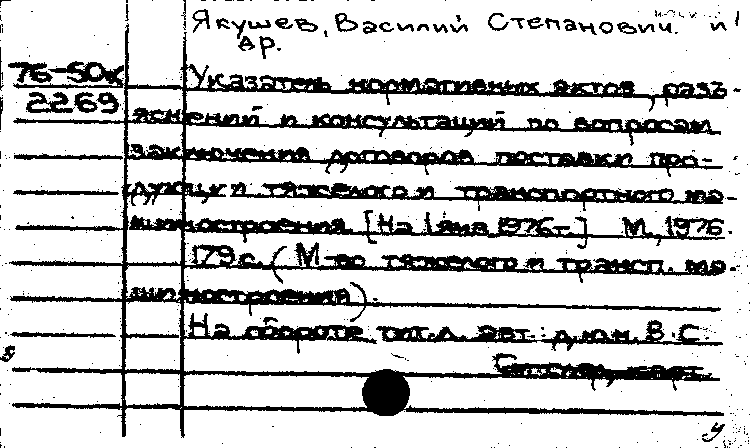 Якушев, Василий Степанович. и
др.
76-50к Указатель нормативных актов, разъ-
2269 яснений и консультаций по вопросам
заключения договоров поставки про-
дукции тяжелого и транспортного ма-
шиностроения. [На 1 янв. 1976 г.] М., 1976.
179 с. (М-во тяжелого и трансп. ма-
шиностроения).
На обороте тит. л. авт.: д. ю. н. В. С.
См. след. карт.
я
у